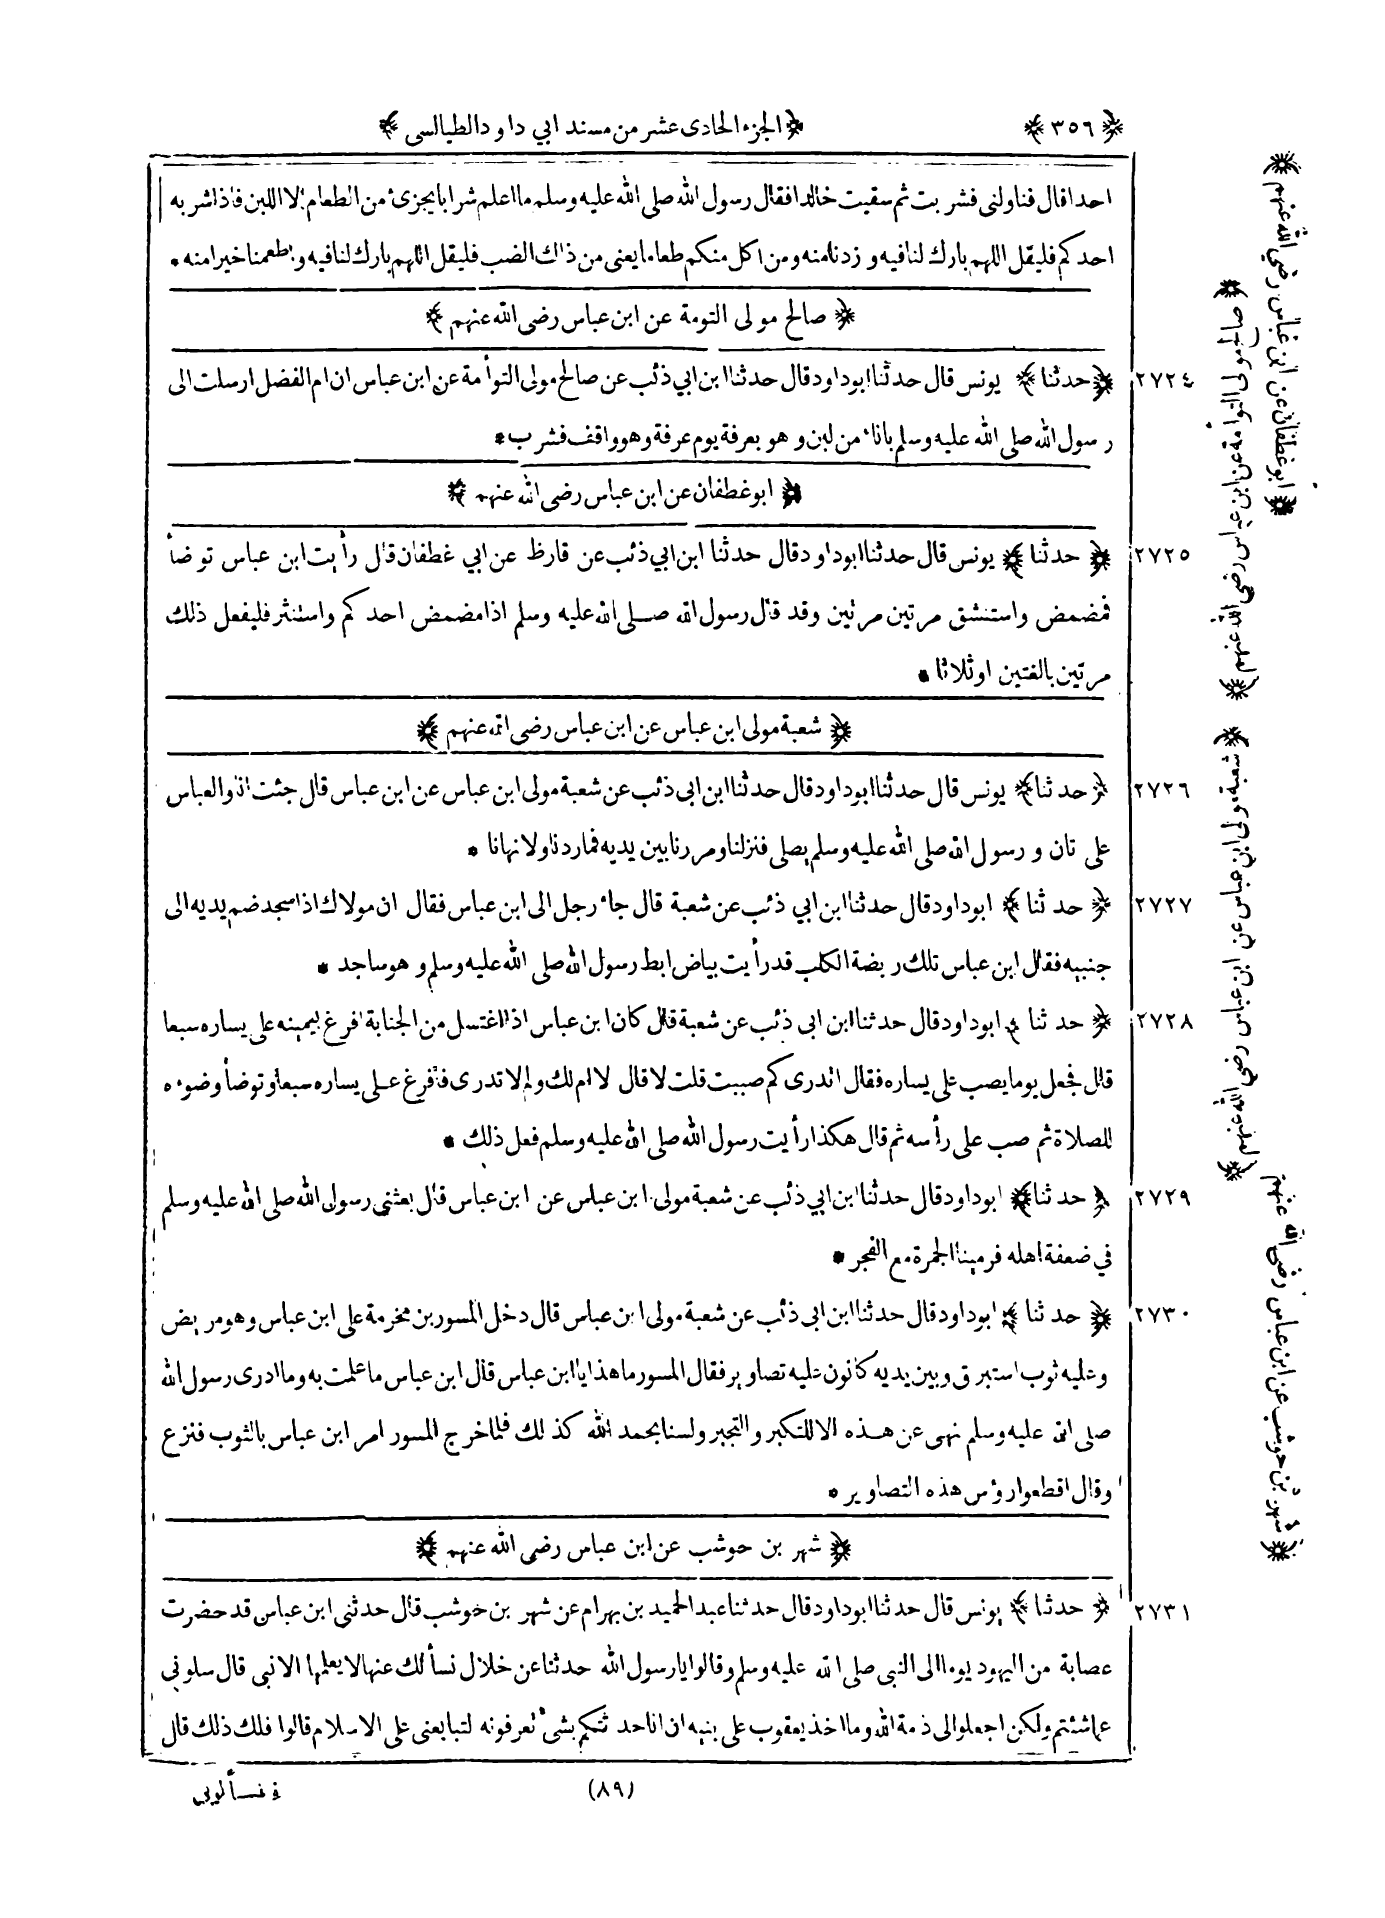 ﴿٣٥٦﴾
﴿الجزء الحادى عشر من مسند ابي داود الطيالسى﴾
احدا قال فناولنى فشربت ثم سقيت خالدا فقال رسول الله صلى الله عليه وسلم ما اعلم شرابا يجزئ من الطعام الا اللبن فاذا شربه
احدكم فليقل اللهم بارك لنا فيه و زدنا منه ومن اكل منكم طعاما يعنى من ذلك الضب فليقل اللهم بارك لنا فيه واطعمنا خيرا منه *
﴿ صالح مولى التومة عن ابن عباس رضى الله عنهم ﴾
٢٧٢٤ ﴿حدثنا﴾ يونس قال حدثنا ابوداود قال حدثنا ابن ابي ذئب عن صالح مولى التوأمة عن ابن عباس ان ام الفضل ارسلت الى
رسول الله صلى الله عليه وسلم باناء من لبن و هو بعرفة يوم عرفة وهو واقف فشرب *
﴿ ابو غطفان عن ابن عباس رضى الله عنهم ﴾
٢٧٢٥ ﴿ حدثنا ﴾ يونس قال حدثنا ابوداود قال حدثنا ابن ابي ذئب عن قارظ عن ابي غطفان قال رأيت ابن عباس توضأ
فمضمض واستنشق مرتين مرتين وقد قال رسول الله صلى الله عليه وسلم اذا مضمض احدكم واستنثر فليفعل ذلك
مرتين بالغتين اوثلاثا *
﴿ شعبة مولى ابن عباس عن ابن عباس رضى الله عنهم ﴾
٢٧٢٦ ﴿حدثنا﴾ يونس قال حدثنا ابوداود قال حدثنا ابن ابى ذئب عن شعبة مولى ابن عباس عن ابن عباس قال جئت انا والعباس
على تان و رسول الله صلى الله عليه وسلم يصلى فنزلنا ومررنا بين يديه فماردنا ولا نهانا *
٢٧٢٧ ﴿ حدثنا ﴾ ابوداود قال حدثنا ابن ابي ذئب عن شعبة قال جاء رجل الى ابن عباس فقال ان مولاك اذا سجد ضم يديه الى
جنبيه فقال ابن عباس تلك ربضة الكلب قد رأيت بياض ابط رسول الله صلى الله عليه وسلم و هو ساجد *
٢٧٢٨ ﴿ حدثنا ﴾ ابوداود قال حدثنا ابن ابى ذئب عن شعبة قال كان ابن عباس اذا اغتسل من الجنابة افرغ بيمينه على يساره سبعا
قال فجعل يوما يصب على يساره فقال اتدرى كم صببت قلت لا قال لا ام لك ولم لا تدرى فافرغ على يساره سبعا وتوضأ وضوءه
للصلاة ثم صب على رأسه ثم قال هكذا رأيت رسول الله صلى الله عليه وسلم فعل ذلك *
٢٧٢٩ ﴿ حدثنا﴾ ابوداود قال حدثنا ابن ابي ذئب عن شعبة مولى ابن عباس عن ابن عباس قال بعثنى رسول الله صلى الله عليه وسلم
في ضعفة اهله فرمينا الجمرة مع الفجر *
٢٧٣٠ ﴿ حدثنا ﴾ ابوداود قال حدثنا ابن ابى ذئب عن شعبة مولى ابن عباس قال دخل المسور بن مخرمة على ابن عباس وهو مريض
وعليه ثوب استبرق وبين يديه كانون عليه تصاوير فقال المسور ما هذا يا ابن عباس قال ابن عباس ما علمت به وما ادرى رسول الله
صلى الله عليه وسلم نهى عن هذه الا للتكبر والتجبر ولسنا بحمد الله كذلك فلما خرج المسور امر ابن عباس بالثوب فنزع
وقال اقطعوا رؤس هذه التصاوير *
﴿ شهر بن حوشب عن ابن عباس رضى الله عنهم ﴾
٢٧٣١ ﴿ حدثنا ﴾ يونس قال حدثنا ابوداود قال حدثنا عبد الحميد بن بهرام عن شهر بن حوشب قال حدثنى ابن عباس قد حضرت
عصابة من اليهود يوما الى النبى صلى الله عليه وسلم وقالوا يا رسول الله حدثنا عن خلال نسألك عنها لا يعلمها الا نبى قال سلونى
عما شئتم ولكن اجعلوا لى ذمة الله وما اخذ يعقوب على بنيه ان انا حدثتكم بشئ تعرفونه لتبايعنى على الاسلام قالوا فلك ذلك قال
(٨٩)
فسألونى
﴿ ابو غطفان عن ابن عباس رضي الله عنهم ﴾
﴿ صالح مولى التوأمة عن ابن عباس رضى الله عنهم ﴾
﴿ شعبة مولى ابن عباس عن ابن عباس رضى الله عنهم ﴾
﴿ شهر بن حوشب عن ابن عباس رضى الله عنهم